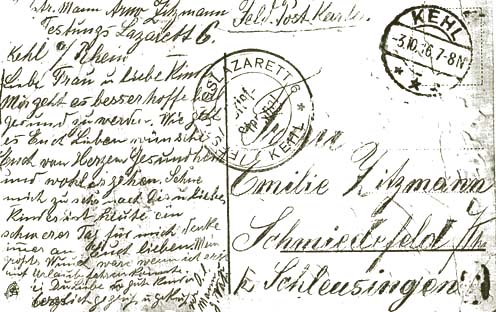 Mann Arno Zitzmann
Festungs Lazarett 6.
Kehl a/ Rhein
Feld Post Karte
KEHL
-3.10.16.7-8N
LAZARETT 6
KEHL
Liebe Frau u liebe Kinder
Mir geht es besser hoffe bald
gesund zu werden. Wie geht
es Euch Lieben wünsche
Euch von Herzen Gesundheit
und wohlergehen. Sehne
mich so sehr nach Dir u liebe
Kinder ist heute ein
schwerer Tag für mich denke
immer an Euch lieben. Mein
größt. Wunsch wäre wenn ich
auf Urlaub fahren könnte
Du Liebe
herzl. gegrüßt u geküßt
Frau
Emilie Zitzmann
in
Schmiedefeld
Schleusingen